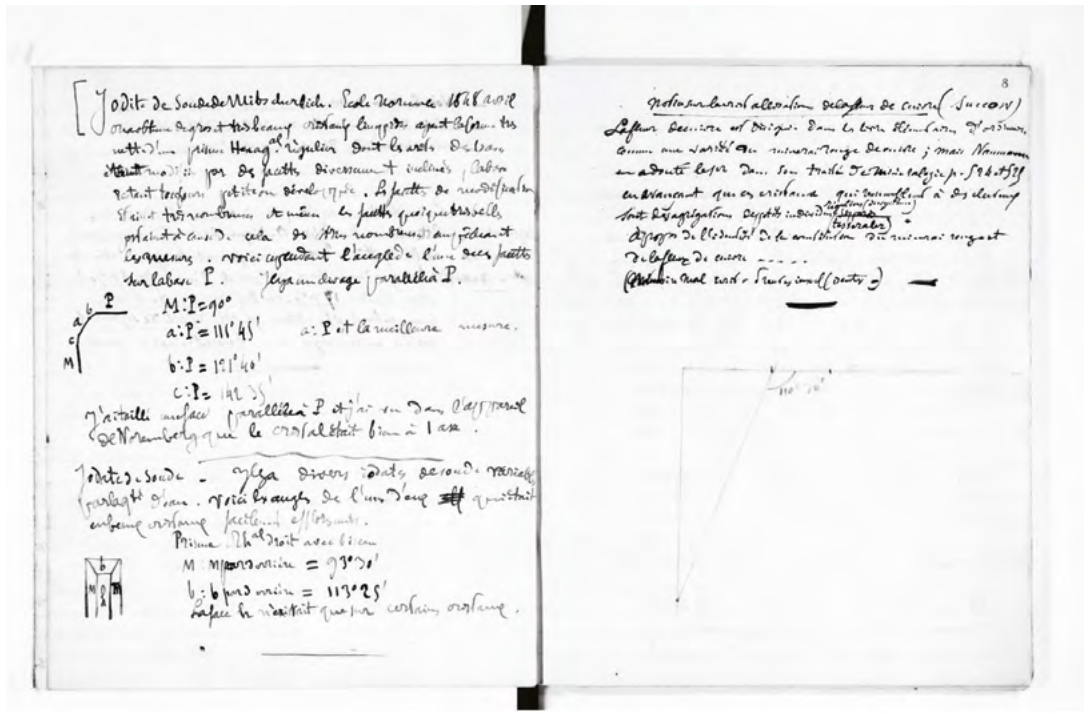 Iodit de Soude de Mitscherlich. Ecole Normale. 1848 avril
on a obtenu de gros et très beaux cristaux limpides ayant la forme très
nette d'un prisme Hexag.al régulier dont les arêtes des bases
étaient modifiées par des facettes diversement inclinées, la base
restant toujours petite ou développée. Les facettes de modification
étaient très nombreuses et même ces facettes quoique très belles
à cause de cela des stries nombreuses empêchant
les mesures. Voici cependant l'angle de l'une des facettes
sur la base P. Il y a un clivage parallèle à P.
b P
a
c
M
M:P = 90°
a:P = 111° 45' a:P est la meilleure mesure.
b:P = 121° 40'
c:P = 142 35'
J'ai taillé une face parallèle à P et j'ai vu dans l'appareil
de Noremberg que le cristal était bien à 1 axe.
Iodate de Soude _ Il y a divers iodates de soude variables
par la q.té d'eau. Voici les angles de l'un d'eux qui était
en beaux cristaux facilement efflorescents.
Prisme Rh.al droit avec biseau
M : M par derrière = 93° 30'
b : b par derrière = 113° 25'
La face h n'existait que sur certains cristaux.
b
M h M
8
Notice sur la cristallisation de la fleur de cuivre (Suckow)
La fleur de cuivre est désignée dans les livres élémentaires d'oryctognosie
comme une variété du minerai rouge de cuivre ; mais Naumann
en a douté la for dans son traité de minéralogie p. 524 et 525
en avançant que ces cristaux qui ressemblent à des cheveux
sont des agrégations de petits individus
tesseraler
à propos de l'identité de la constitution du minerai rouge et
de la fleur de cuivre . . . . .
110° 20'